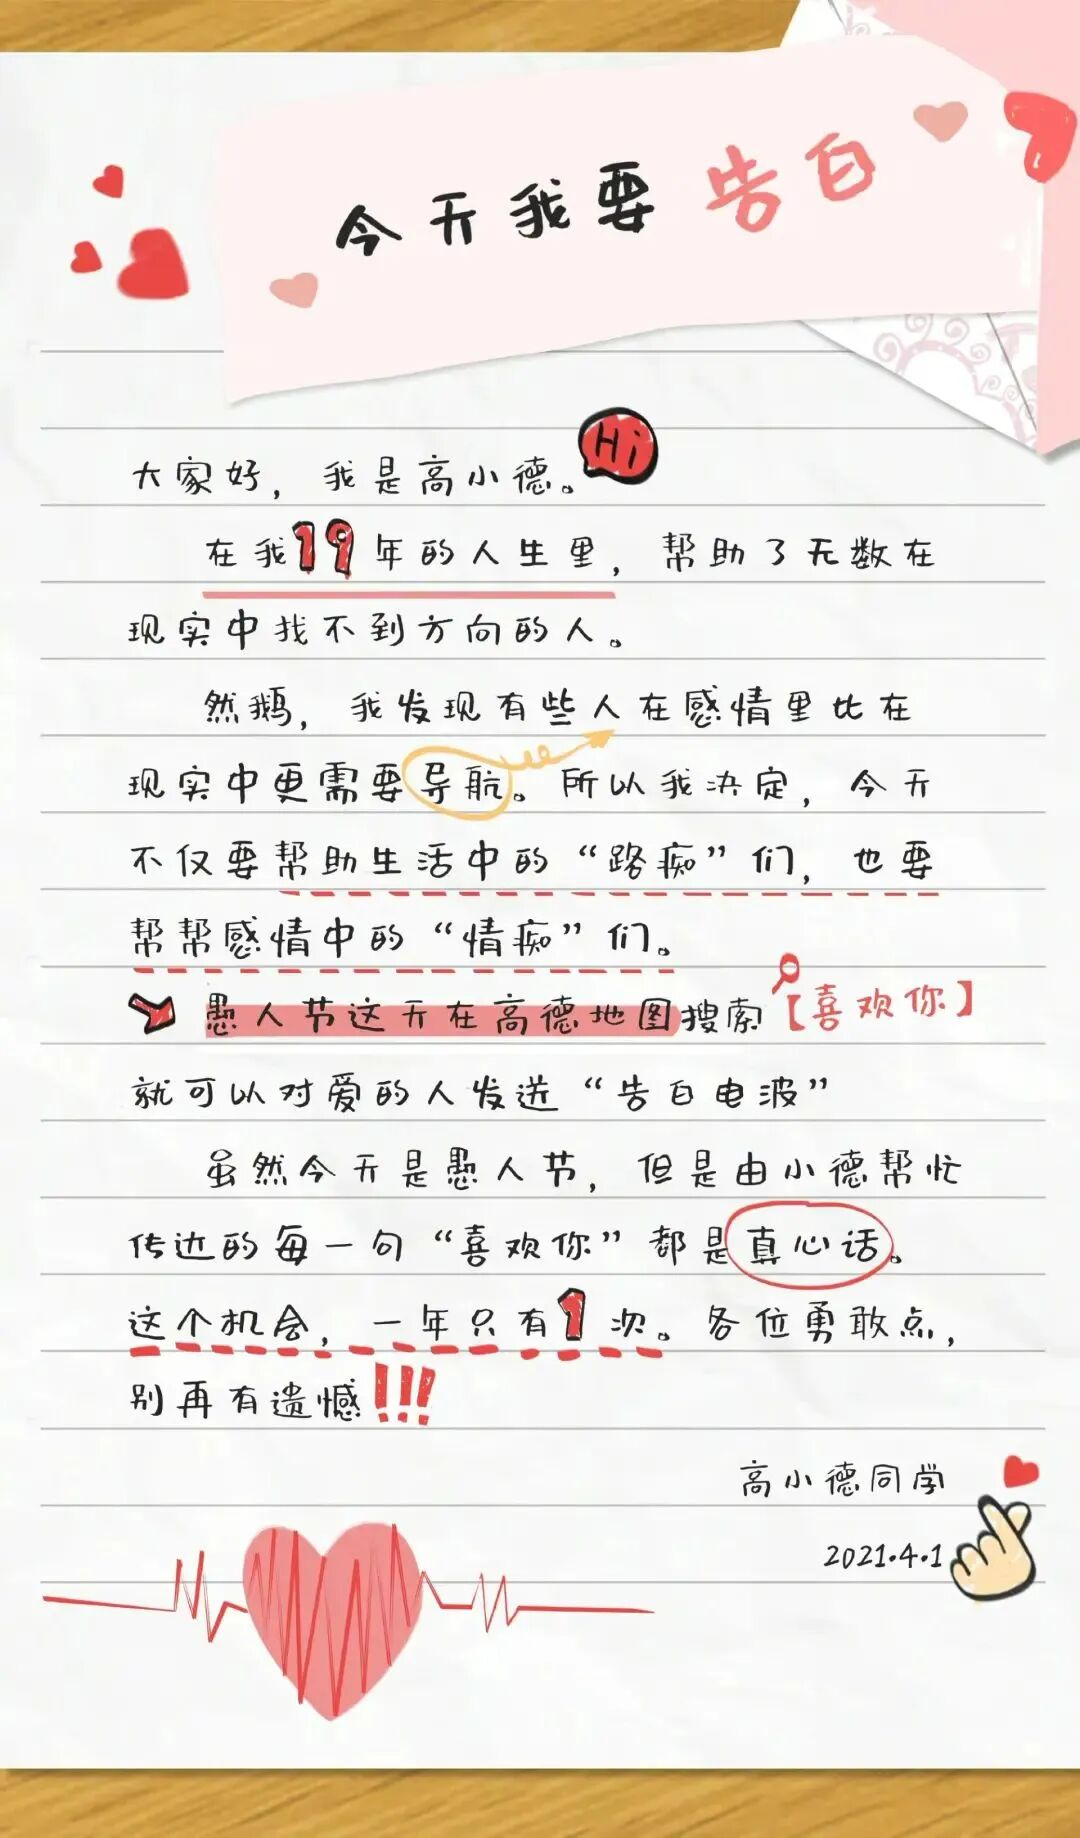 今天我要告白
大家好，我是高小德。
Hi
在我19年的人生里，帮助了无数在
现实中找不到方向的人。
然鹅，我发现有些人在感情里比在
现实中更需要导航。所以我决定，今天
不仅要帮助生活中的“路痴”们，也要
帮帮感情中的“情痴”们。
愚人节这天在高德地图搜索【喜欢你】
就可以对爱的人发送“告白电波”
虽然今天是愚人节，但是由小德帮忙
传达的每一句“喜欢你”都是真心话。
这个机会，一年只有1次。各位勇敢点，
别再有遗憾!!!
高小德同学
2021.4.1